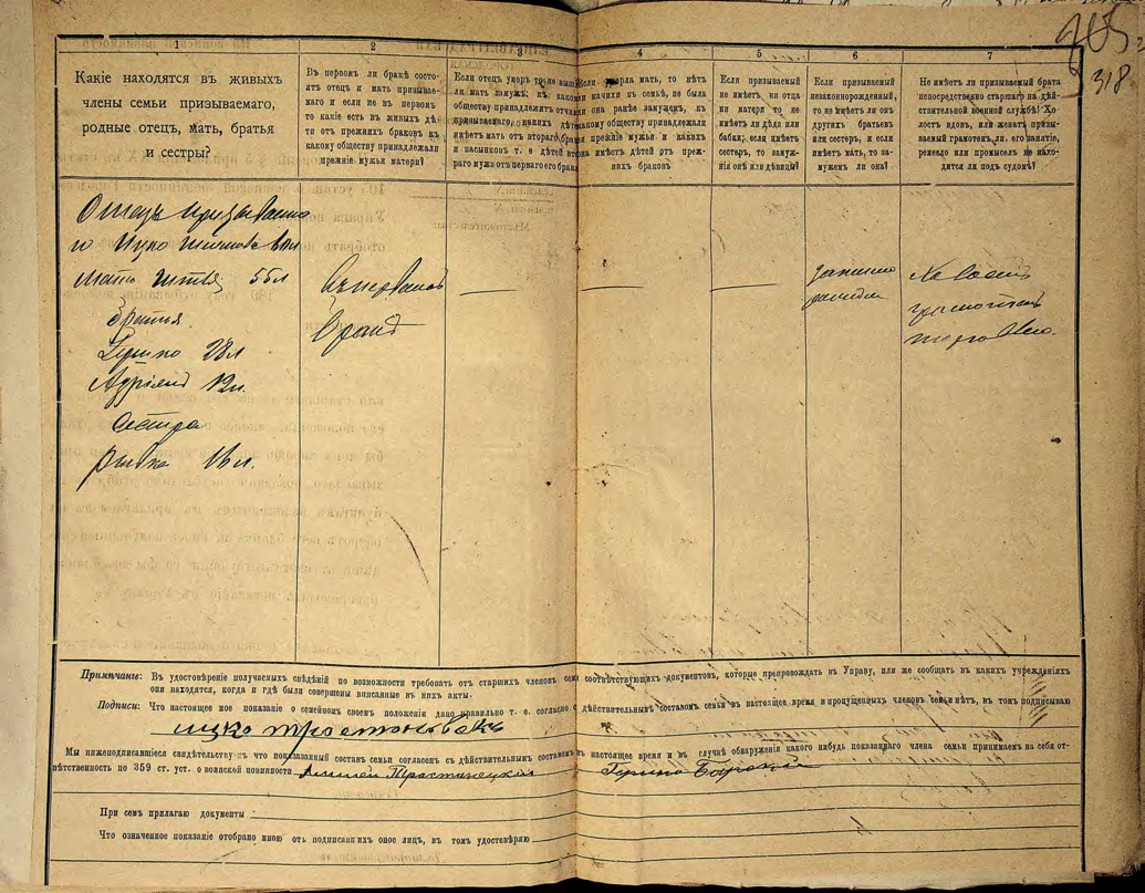 318
1
2
3
4
5
6
7
Какіе находятся въ живыхъ
члены семьи призываемаго,
родные отецъ, мать, братья
и сестры?
Въ первомъ ли бракѣ состо-
ятъ отецъ и мать призывае-
маго и если не въ первомъ
то какіе есть въ живыхъ дѣ-
ти отъ прежнихъ браковъ къ
какому обществу принадлежали
прежніе мужья матери?
Если отецъ умеръ то не вышла
ли мать замужъ; къ какому
обществу принадлежитъ отчимъ
призываемаго, какихъ дѣтей
имѣетъ мать отъ второго брака
и пасынковъ т. е. дѣтей второ-
раго мужа отъ перваго его брака
Если умерла мать, то нѣтъ
ли мачихи въ семьѣ, не была
ли она ранѣе замужемъ, къ
какому обществу принадлежали
прежніе мужья и какихъ
она имѣетъ дѣтей отъ преж-
нихъ браковъ
Если призываемый
не имѣетъ ни отца
ни матери то не
имѣетъ ли дѣда или
бабки; если имѣетъ
сестеръ, то замуж-
нія онѣ или дѣвицы?
Если призываемый
незаконнорожденный,
то не имѣетъ ли онъ
другихъ братьевъ
или сестеръ, и если
имѣетъ мать, то за-
мужемъ ли она?
Не имѣетъ ли призываемый брата
непосредственно старшаго на дѣй-
ствительной военной службѣ? Хо-
лостъ вдовъ, или женатъ призы-
ваемый грамотенъ ли, его занятіе,
ремесло или промыселъ не нахо-
дится ли подъ судомъ?
Отецъ призываемо
го Ицко
Мать 55л
Братья
28л
12л.
сестра
Рывка 18л.
Въ первомъ
бракѣ
—
—
—
Холостъ
грамотенъ
Примѣчаніе: Въ удостовѣреніе получаемыхъ свѣдѣній по возможности требовать отъ старшихъ членовъ семьи соотвѣтствующихъ документовъ, которые препровождать въ Управу, или же сообщать въ какихъ учрежденіяхъ
они находятся, когда и гдѣ были совершены вписанные въ нихъ акты.
Подписи: Что настоящее мое показаніе о семейномъ своемъ положеніи дано правильно т. е. согласно съ дѣйствительнымъ составомъ семьи въ настоящее время и пропущенныхъ членовъ семьи нѣтъ, въ томъ подписываю
ицко
Мы нижеподписавшіеся свидѣтельствуемъ что показанный составъ семьи согласенъ съ дѣйствительнымъ составомъ въ настоящее время и въ случаѣ обнаруженія какого нибудь показаннаго члена семьи принимаемъ на себя от-
вѣтственность по 359 ст. уст. о воинской повинности Тростанецкій
При семъ прилагаю документы
Что означенное показаніе отобрано мною отъ подписанихъ оное лицъ, въ томъ удостовѣряю